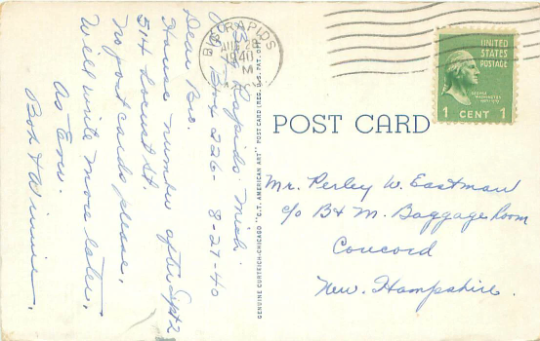 Rapids Mich.
Box 226 - 8-27-40
Dear Bro.
House number after Sept 2
514 Locust St.
No post cards please.
Will write more later.
As Ever.
Bob & Winnie.
BIG RAPIDS
AUG 28
1940
M
GENUINE CURTEICH-CHICAGO "C.T. AMERICAN ART" POST CARD (REG. U.S. PAT. OFF.)
POST CARD
UNITED
STATES
POSTAGE
1 CENT 1
Mr. Perley W. Eastman
c/o B & M. Baggage Room
Concord
New. Hampshire.